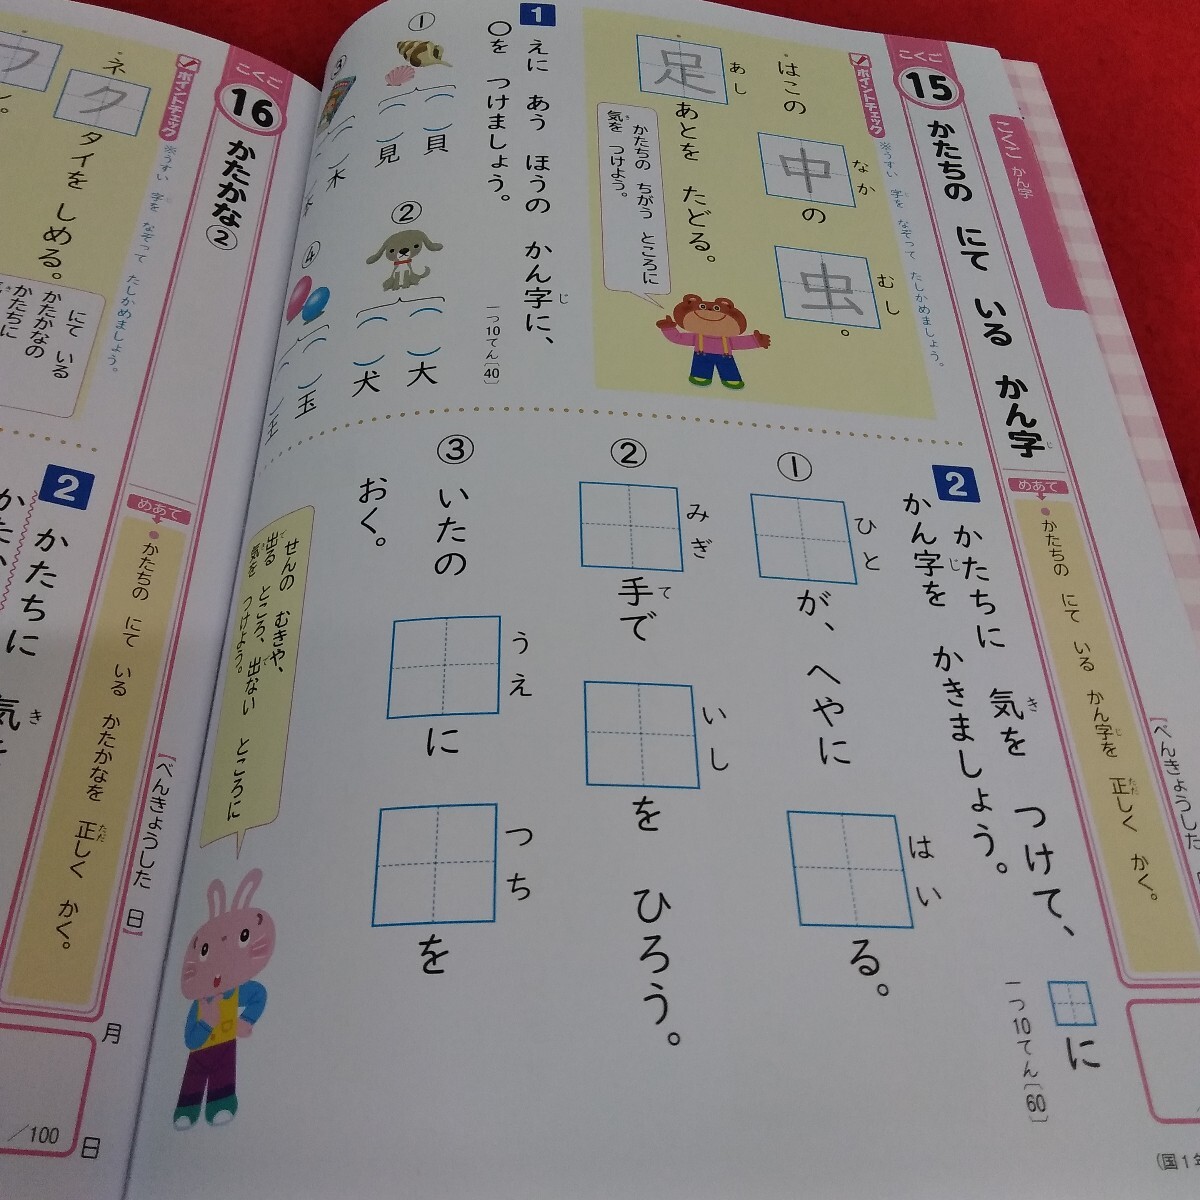 こくご かん字
こくご
15
かたちの にて いる かん字
じ
めあて
かたちの にて いる かん字を 正しく かく。
じ
ただ
〔べんきょうした
ポイントチェック
※うすい 字を なぞって たしかめましょう。
はこの 中の 虫。
なか
むし
足あとを たどる。
あし
かたちの ちがう ところに
気を つけよう。
き
1
えに あう ほうの かん字に、
じ
〇を つけましょう。
一つ10てん〔40〕
①
貝
見
②
大
犬
③
木
④
玉
王
2
かたちに 気を つけて、□に
き
かん字を かきましょう。
じ
一つ10てん〔60〕
①
ひと
□が、へやに □る。
はい
②
みぎ
□手で □を ひろう。
て
いし
③
いたの □に □を
うえ
つち
おく。
せんの むきや、
出る ところ、出ない ところに
で
で
気を つけよう。
き
(国1年
こくご
16
かたかな②
めあて
かたちの にて いる かたかなを 正しく かく。
ただ
〔べんきょうした 日〕
月
日
/100
ポイントチェック
※うすい 字を なぞって たしかめましょう。
ネクタイを しめる。
にて いる
かたかなの
かたちに
2
かたちに 気を
き